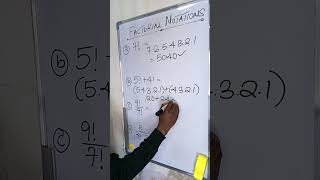 FACTORIAL NOTATIONS
ⓐ 7! 7.6.5.4.3.2.1
= 5040 ✓
ⓑ 5! + 4! =
(5.4.3.2.1)+(4.3.2.1)
120+24
ⓒ 9!/7! =
5!
9!
7!